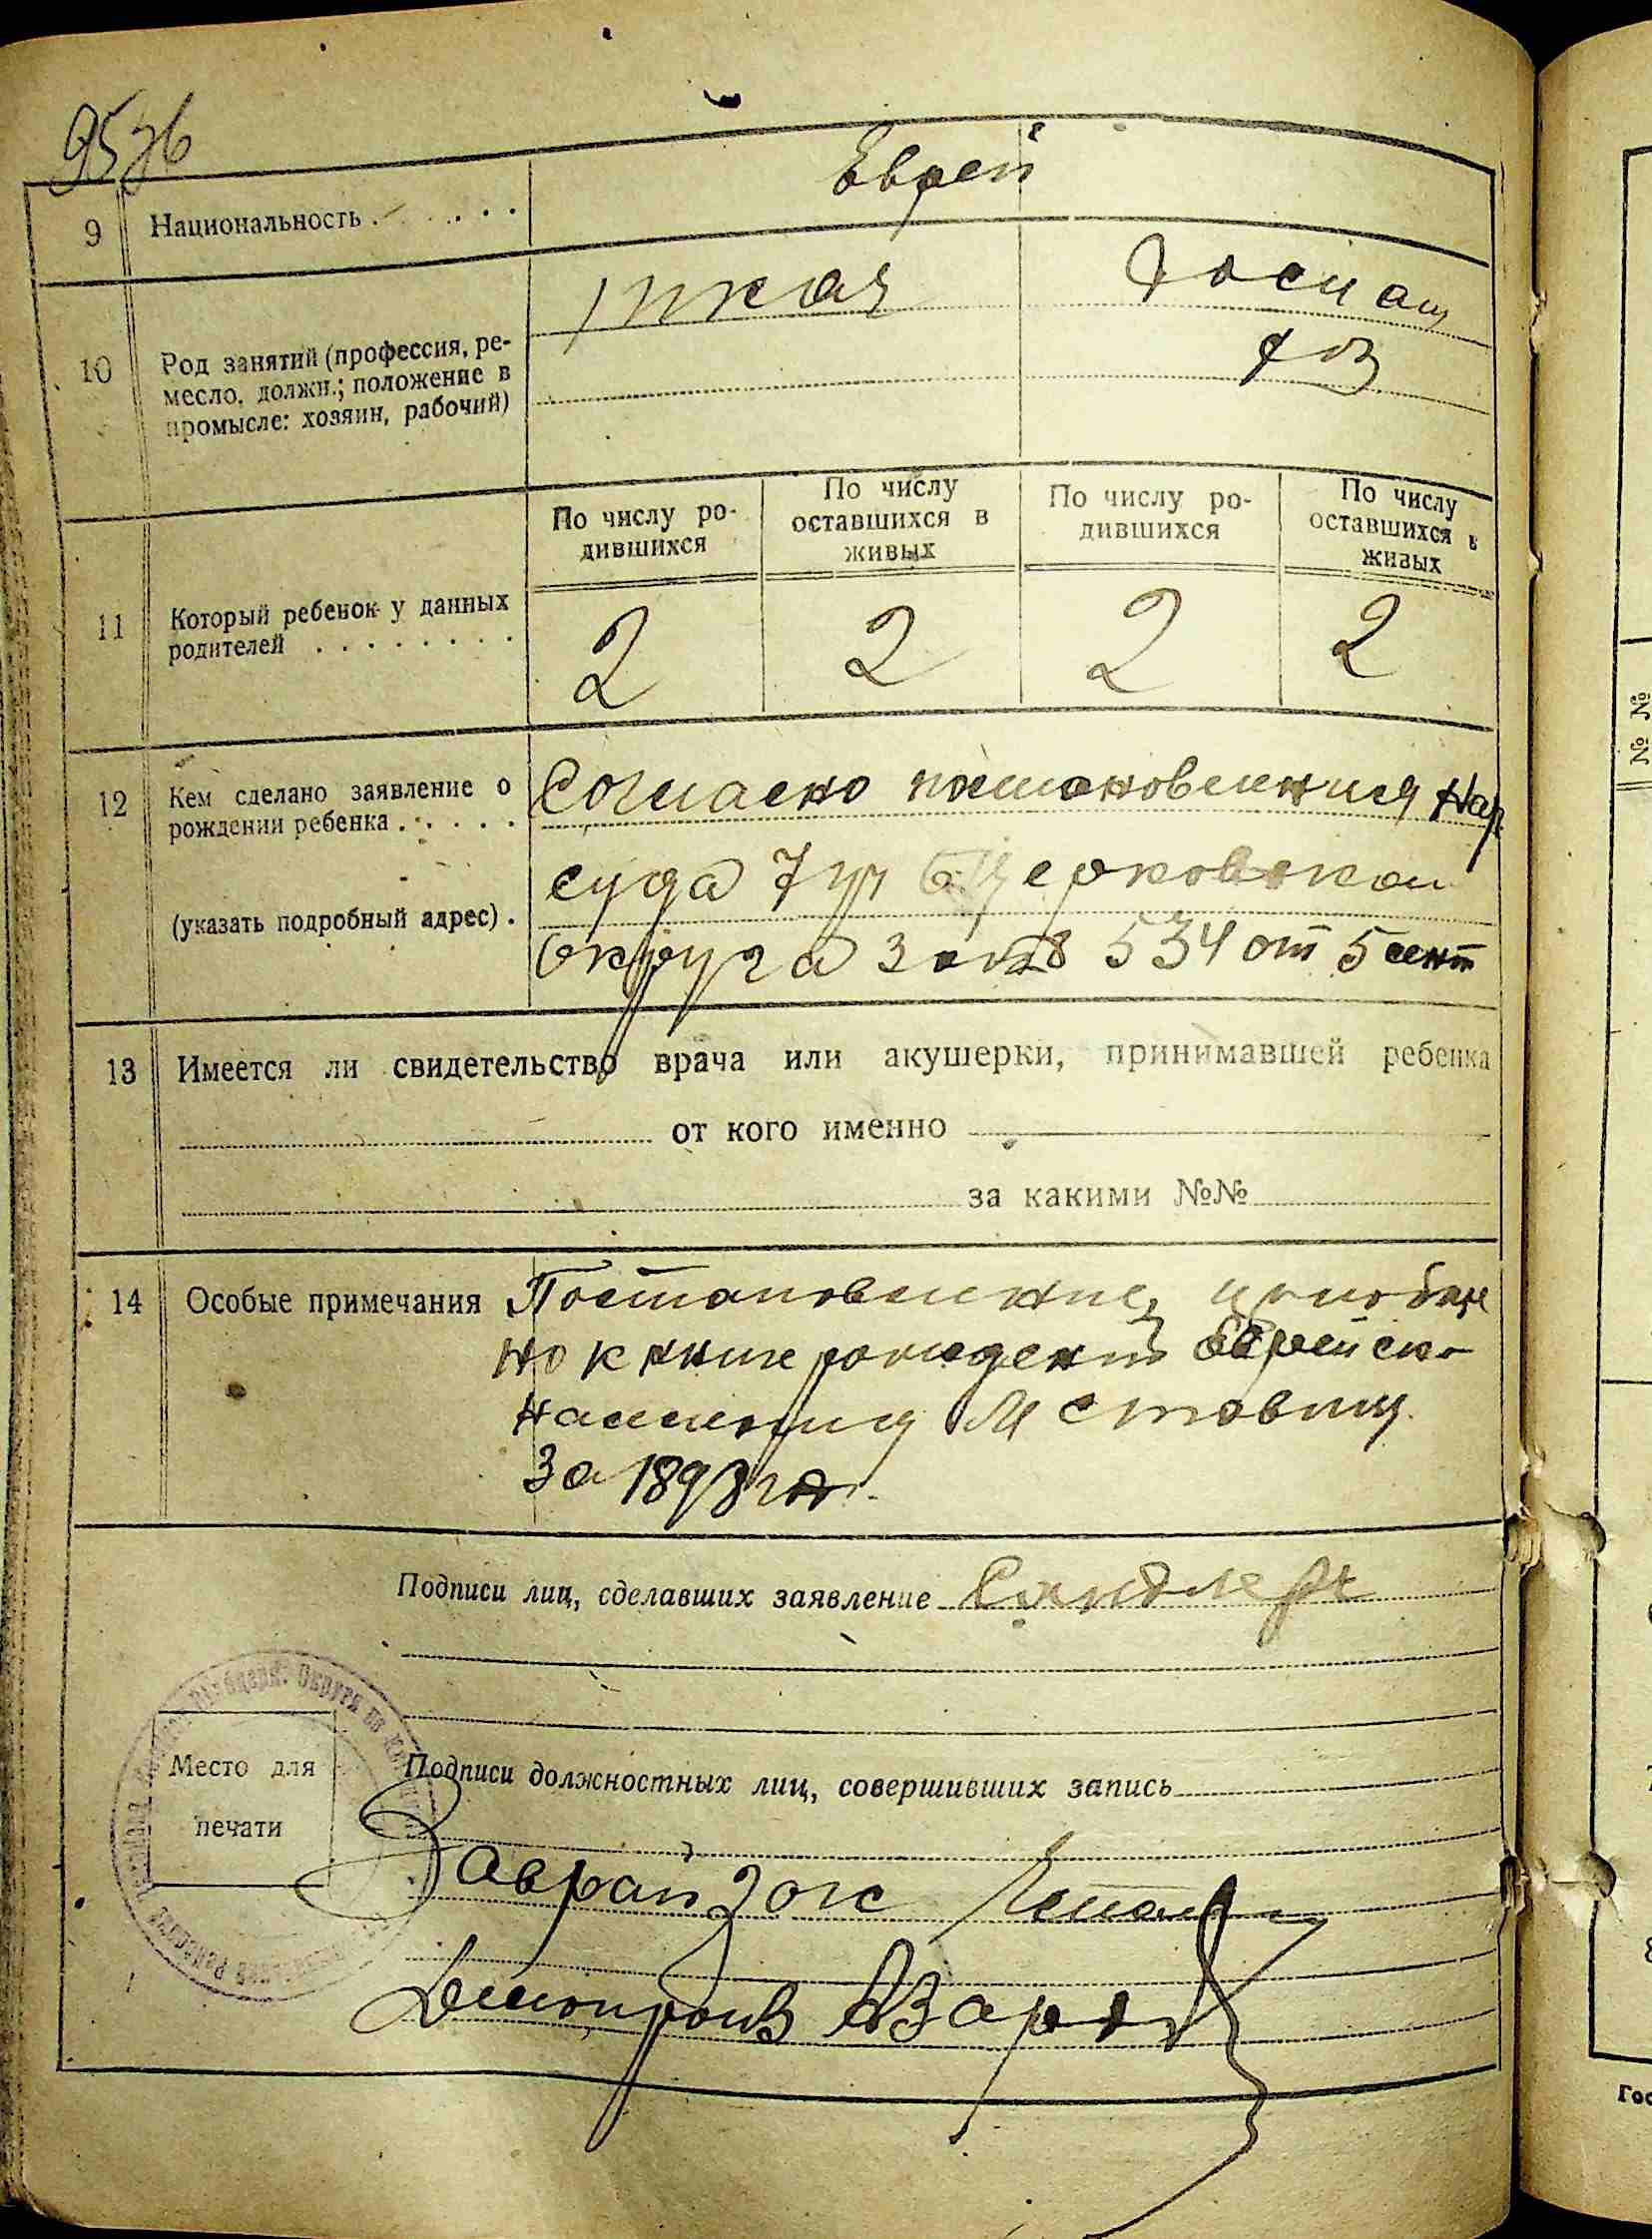 9
Национальность . . . . . .
Еврей
10
Род занятий (профессия, ре-
месло, должн.; положение в
промысле: хозяин, рабочий)
ткач
11
Который ребенок у данных
родителей . . . . . . . .
По числу ро-
дившихся
По числу
оставшихся в
живых
По числу ро-
дившихся
По числу
оставшихся в
живых
2 2 2 2
12
Кем сделано заявление о
рождении ребенка . . . . . .
(указать подробный адрес) .
Согласно постановления Нар
суда 7 уч Б Церковской
Округа за № 534 от 5 сент
13
Имеется ли свидетельство врача или акушерки, принимавшей ребенка
от кого именно
за какими №№
14
Особые примечания
Постановление
но к книге рождений Еврейско
населения М Ставищ
За 1898 год.
Подписи лиц, сделавших заявление Сандлер
Место для
печати
Подписи должностных лиц, совершивших запись
Заврайзагс
Делопроизв Азаров
№ №
Гос